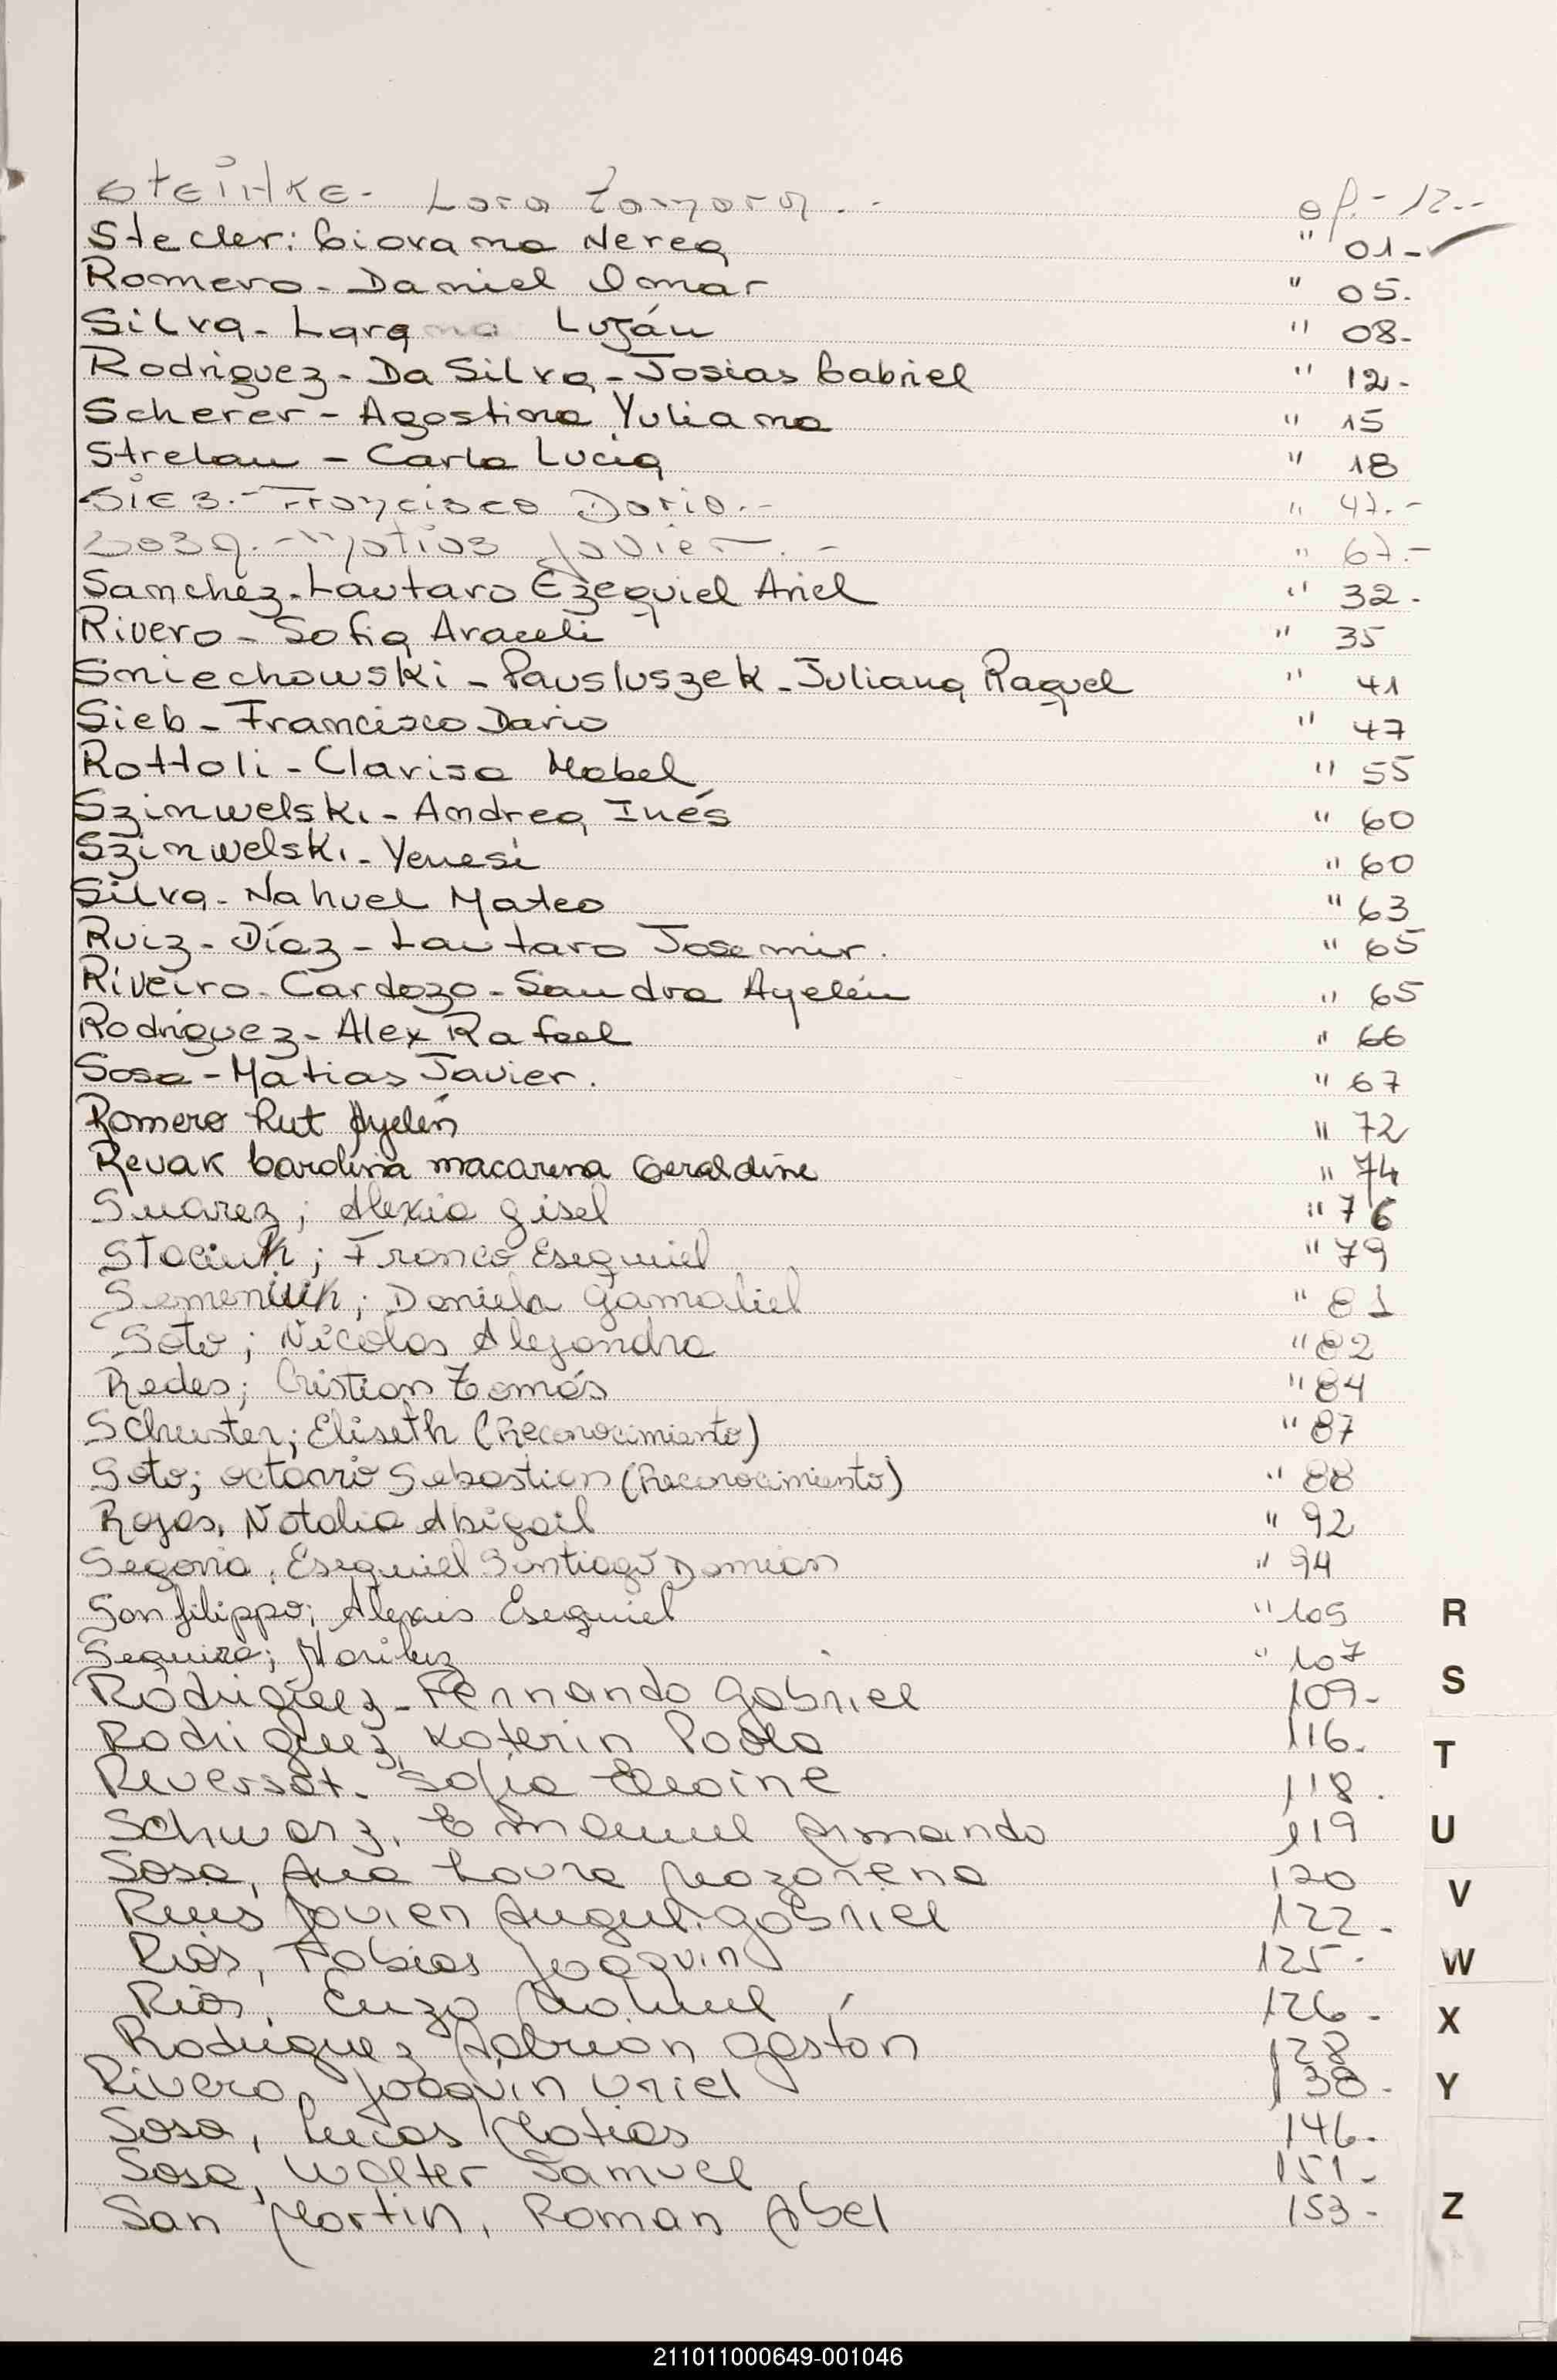 Steihke.- Lara Tamara.- of.- 12.-
Stecler: Giovanna Nerea " 01-
Romero - Daniel Omar " 05.
Silva - Lara Luján " 08-
Rodriguez - Da Silva - Josias Gabriel " 12-
Scherer - Agostina Yuliana " 15
Strelau - Carla Lucia " 18
Sieb.- Francisco Dario.- " 47.-
Sosa.- Matias Javier.- " 67.-
Sanchez - Lautaro Ezequiel Ariel " 32-
Rivero - Sofia Araceli " 35
Smiechowski - Pausluszek - Juliana Raquel " 41
Sieb - Francisco Dario " 47
Rottoli - Clarisa Mabel " 55
Szinwelski - Andrea Inés " 60
Szinwelski - Yenesi " 60
Silva - Nahuel Mateo " 63
Ruiz - Díaz - Lautaro Josemir. " 65
Riveiro - Cardozo - Sandra Ayelén " 65
Rodriguez - Alex Rafael " 66
Sosa - Matias Javier. " 67
Romero Rut Ayelén " 72
Revak Carolina macarena Geraldine " 74
Suarez; Alexia Gisel " 76
Staciuk; Franco Esequiel " 79
Semeniuk; Daniela Gamaliel " 81
Soto; Nicolas Alejandro " 82
Redes; Cristian Tomás " 84
Schuster; Eliseth (Reconocimiento) " 87
Soto; octavio Sebastian (Reconocimiento) " 88
Rojas, Natalia Abigail " 92
Segovia, Esequiel Santiago Damian " 94
Sanfilippo; Alexis Esequiel " 105
Sequira; Mariluz " 107
Rodriguez - Fernando Gabriel 109-
Rodriguez, Katerin Paola 116.
Reversat. Sofia 118.
Schwarz, Emanuel Armando 119
Sosa, Ana Laura Nazarena 120
Ruis Javier Gabriel 122-
Rios, Tobias Joaquin 125-
Rios, Enzo Nahuel 126-
Rodriguez Adrian Gaston 128
Rivero, Joaquin Uriel 138-
Sosa, Lucas Matias 146-
Sosa, Walter Samuel 151-
San Martin, Roman Abel 153-
R
S
T
U
V
W
X
Y
Z
211011000649-001046